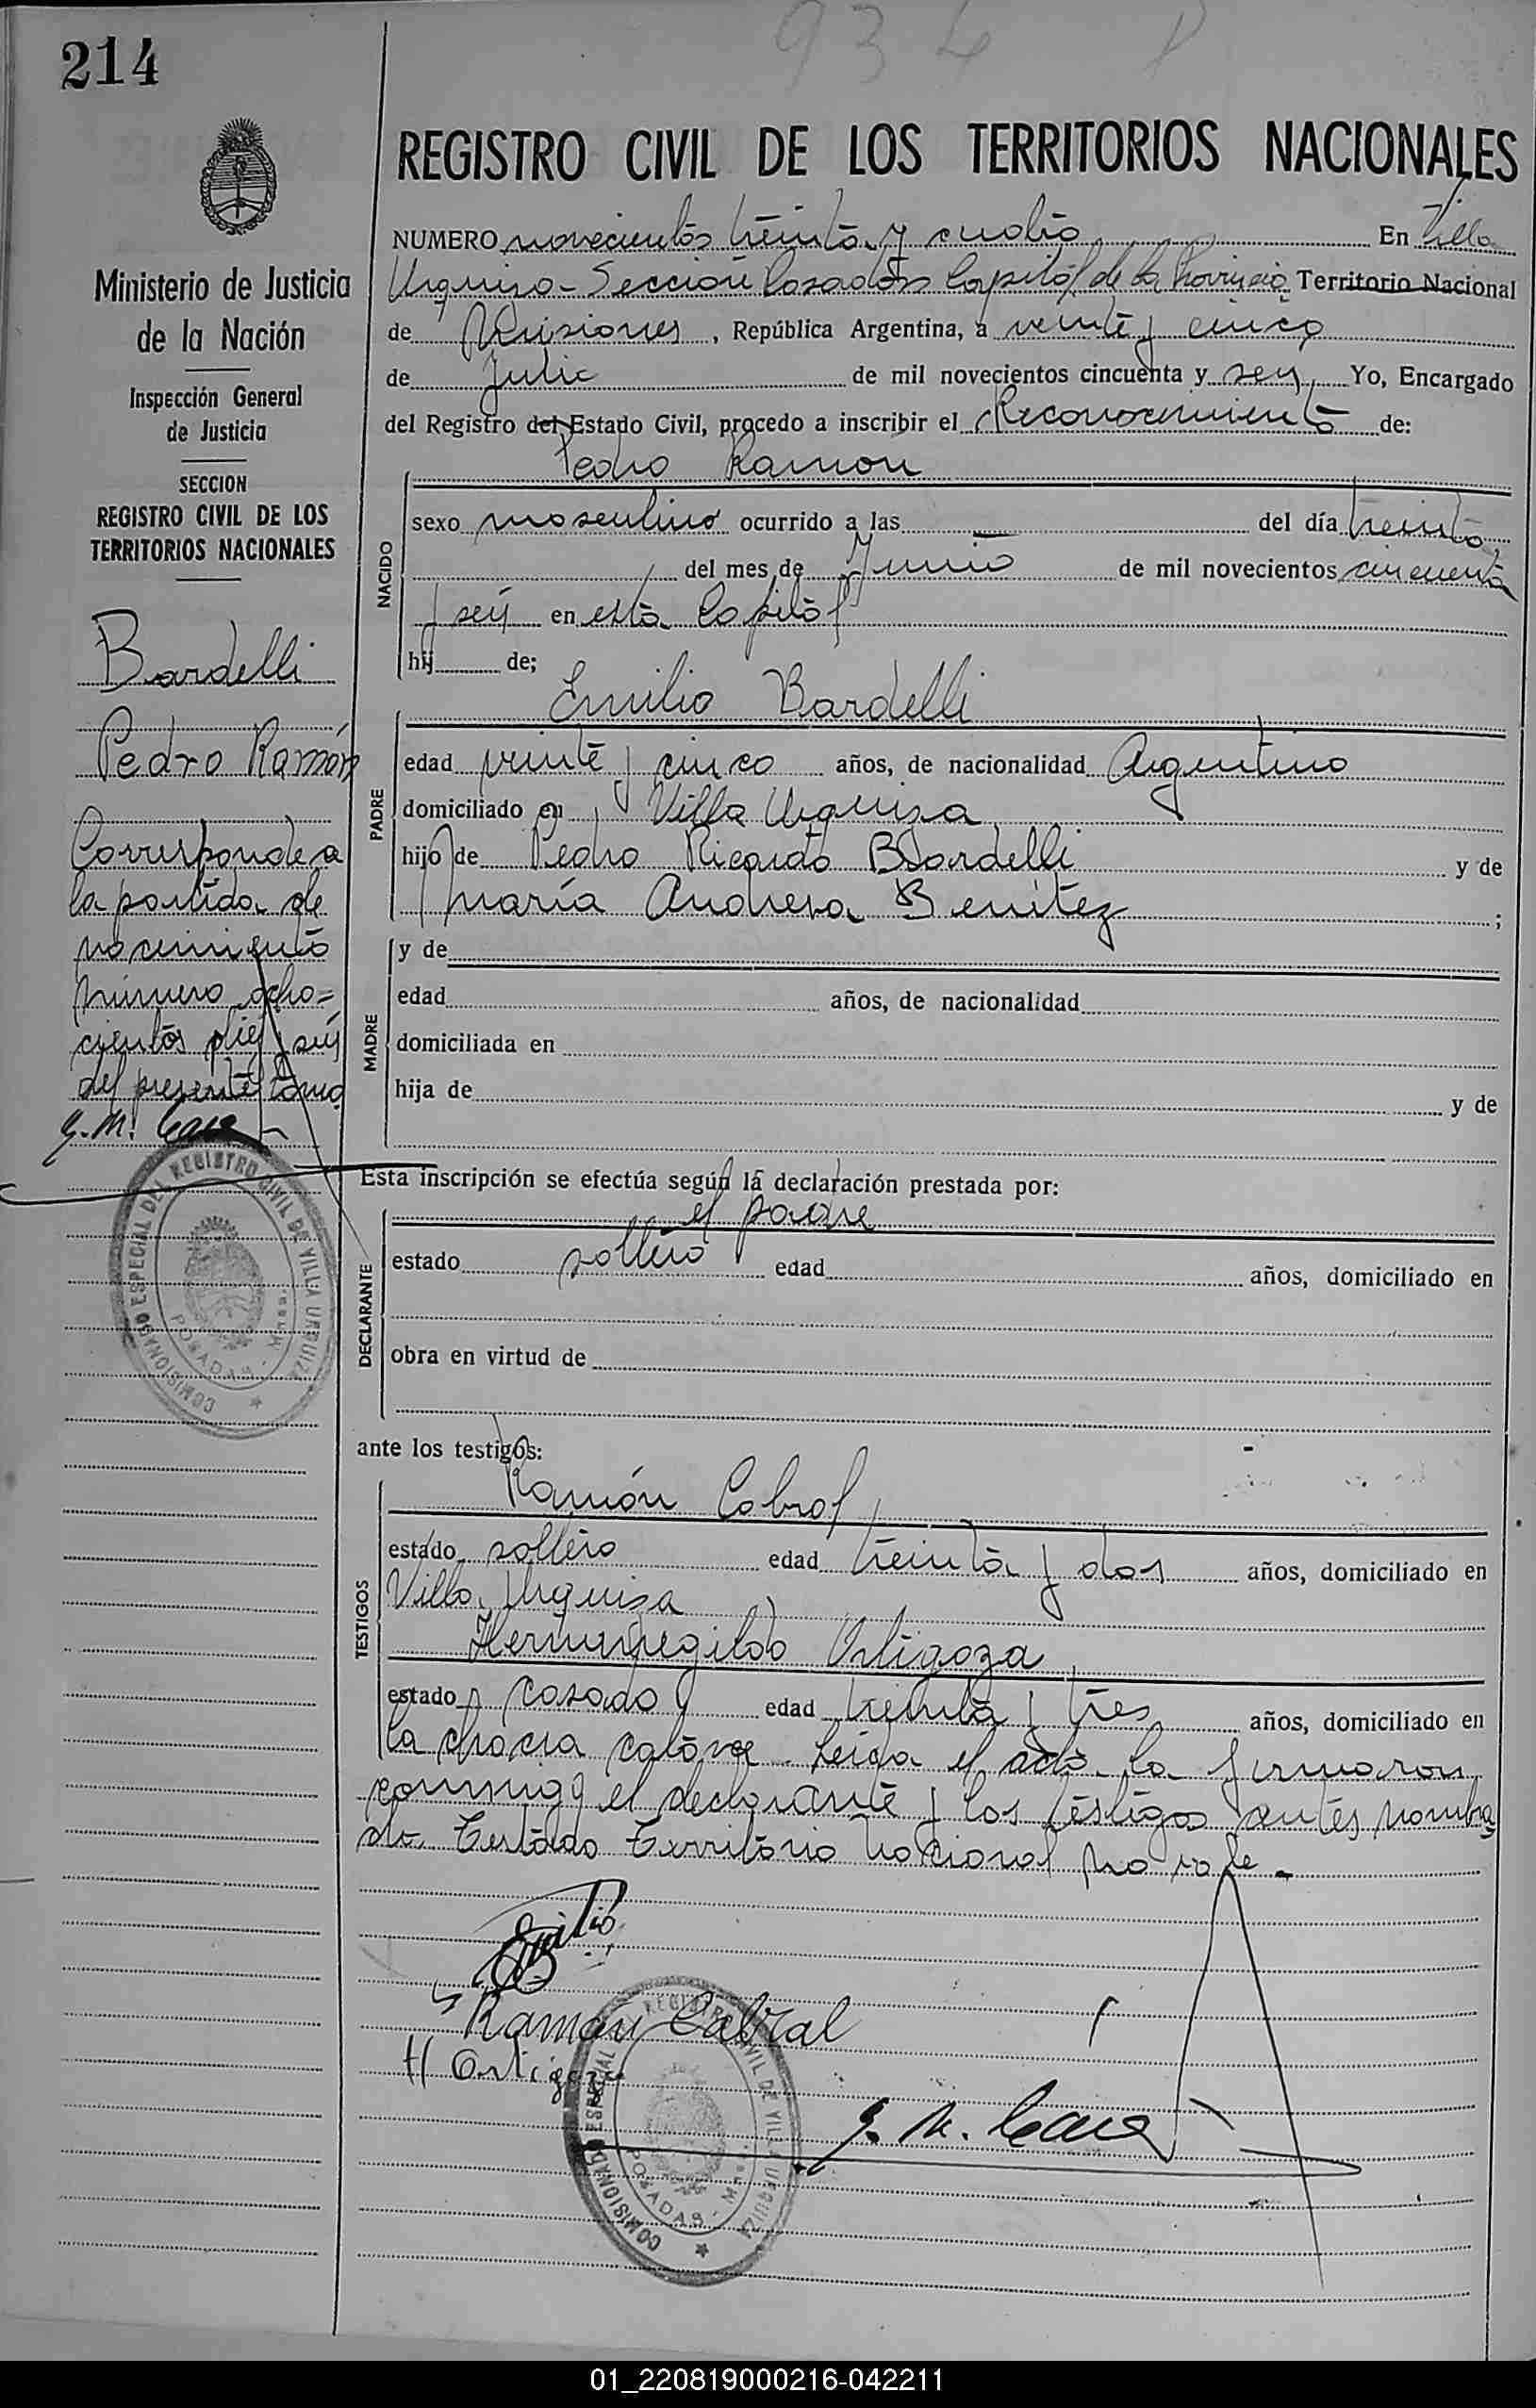 214
934
REGISTRO CIVIL DE LOS TERRITORIOS NACIONALES
NUMERO novecientos treinta y cuatro En Villa
Urquiza - Sección Posadas Capital de la Provincia Territorio Nacional
de Misiones, República Argentina, a veinte y cinco
de Julio de mil novecientos cincuenta y seis, Yo, Encargado
del Registro del Estado Civil, procedo a inscribir el Reconocimiento de:
Pedro Ramon
NACIDO
sexo masculino ocurrido a las del día treinta
del mes de Junio de mil novecientos cincuenta
y seis en esta Capital
hij de;
PADRE
Emilio Bardelli
edad veinte y cinco años, de nacionalidad Argentino
domiciliado en Villa Urquiza
hijo de Pedro Ricardo Bardelli y de
María Andresa Benitez ;
MADRE
y de
edad años, de nacionalidad
domiciliada en
hija de y de
Esta inscripción se efectúa según la declaración prestada por:
DECLARANTE
el padre
estado soltero edad años, domiciliado en
obra en virtud de
ante los testigos:
TESTIGOS
Ramón Cabral
estado soltero edad treinta y dos años, domiciliado en
Villa Urquiza
Hermenegildo Ortigoza
estado casado edad treinta y tres años, domiciliado en
la chacra catorce. Leida el acta la firmaron
conmigo el declarante y los testigos antes nombra
do. Testado Territorio Nacional no vale.-
Emilio
Ramon Cabral
H Ortigoza
COMISIONADO ESPECIAL DEL REGISTRO CIVIL DE VILLA URQUIZA
POSADAS - Mnes.
Ministerio de Justicia
de la Nación
Inspección General
de Justicia
SECCION
REGISTRO CIVIL DE LOS
TERRITORIOS NACIONALES
Bardelli
Pedro Ramón
Corresponde a
la partida de
nacimiento
número ocho=
cientos diez y seis
del presente tomo
COMISIONADO ESPECIAL DEL REGISTRO CIVIL DE VILLA URQUIZA
POSADAS - Mnes.
01_220819000216-042211